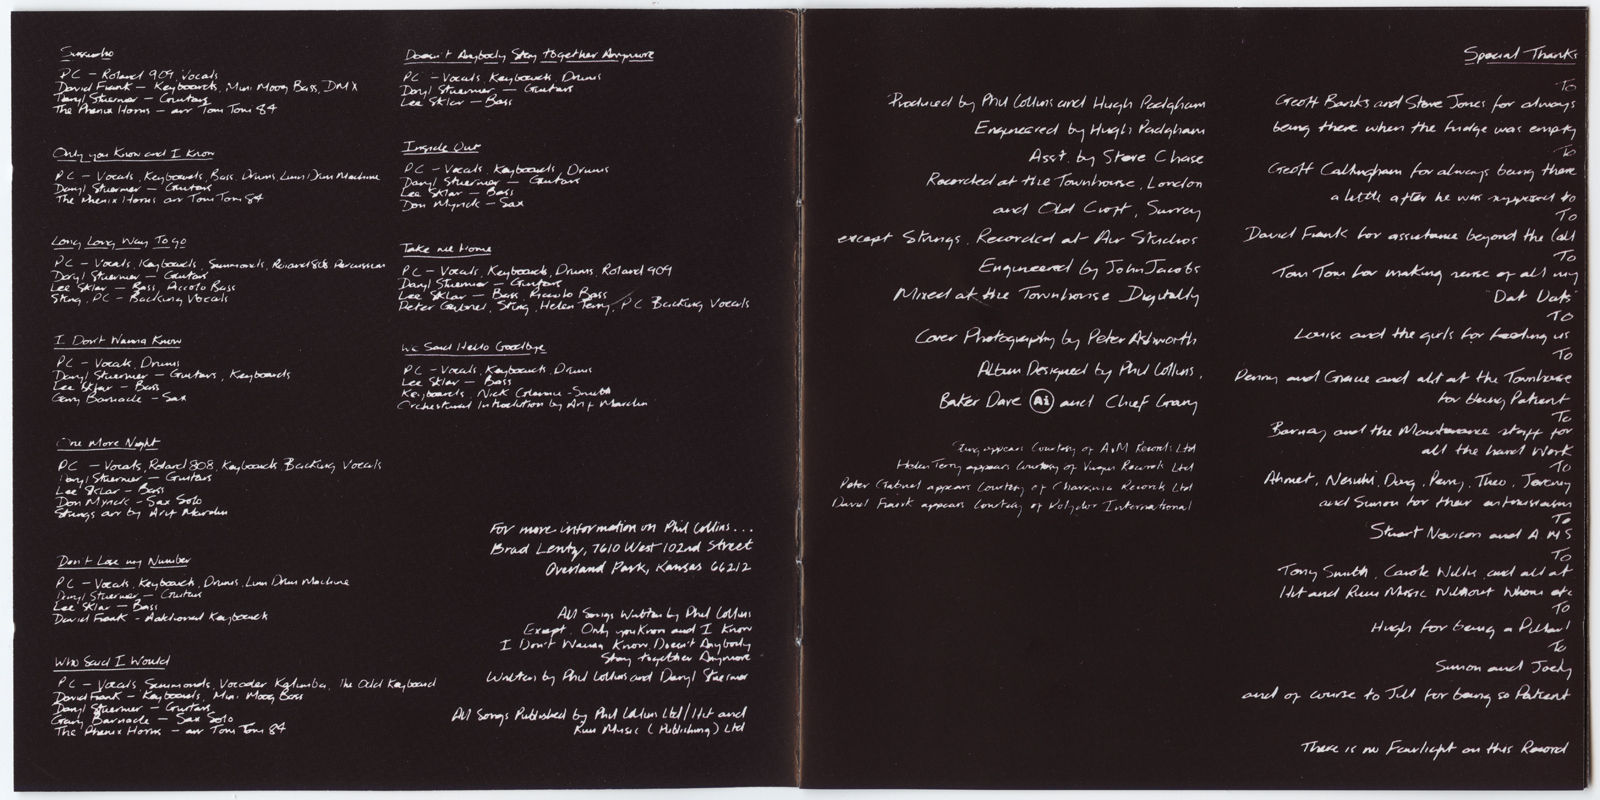 Sussudio
PC – Roland 909, Vocals
David Frank – Keyboards, Mini Moog Bass, DMX
Daryl Stuermer – Guitars
The Phenix Horns – arr Tom Tom 84
Only you Know and I Know
PC – Vocals, Keyboards, Bass, Drums, Linn Drum Machine
Daryl Stuermer – Guitars
The Phenix Horns arr Tom Tom 84
Long Long Way To go
PC – Vocals, Keyboards, Simmonds, Roland 808 Percussion
Daryl Stuermer – Guitars
Lee Sklar – Bass, Piccolo Bass
Sting, PC – Backing Vocals
I Don't Wanna Know
PC – Vocals, Drums
Daryl Stuermer – Guitars, Keyboards
Lee Sklar – Bass
Gary Barnacle – Sax
One More Night
PC – Vocals, Roland 808, Keyboards Backing Vocals
Daryl Stuermer – Guitars
Lee Sklar – Bass
Don Myrick – Sax Solo
Strings arr by Arif Mardin
Don't Lose my Number
PC – Vocals, Keyboards, Drums, Linn Drum Machine
Daryl Stuermer – Guitars
Lee Sklar – Bass
David Frank – Additional Keyboards
Who Said I Would
PC – Vocals, Simmonds, Vocoder Kalimba, The Odd Keyboard
David Frank – Keyboards, Mini Moog Bass
Daryl Stuermer – Guitars
Gary Barnacle – Sax Solo
The Phenix Horns – arr Tom Tom 84
Doesn't Anybody Stay together Anymore
PC – Vocals, Keyboards, Drums
Daryl Stuermer – Guitars
Lee Sklar – Bass
Inside Out
PC – Vocals, Keyboards, Drums
Daryl Stuermer – Guitars
Lee Sklar – Bass
Don Myrick – Sax
Take me Home
PC – Vocals, Keyboards, Drums, Roland 909
Daryl Stuermer – Guitars
Lee Sklar – Bass, Piccolo Bass
Peter Gabriel, Sting, Helen Terry, PC Backing Vocals
We Said Hello Goodbye
PC – Vocals, Keyboards, Drums
Lee Sklar – Bass
Keyboards, Nick Glennie-Smith
Orchestral Introduction by Arif Mardin
For more information on Phil Collins...
Brad Lentz, 7610 West 102nd Street
Overland Park, Kansas 66212
All Songs Written by Phil Collins
Except, Only you Know and I Know
I Don't Wanna Know, Doesn't Anybody
Stay together Anymore
Written by Phil Collins and Daryl Stuermer
All Songs Published by Phil Collins Ltd/Hit and
Run Music (Publishing) Ltd
Produced by Phil Collins and Hugh Padgham
Engineered by Hugh Padgham
Asst. by Steve Chase
Recorded at the Townhouse, London
and Old Croft, Surrey
except Strings. Recorded at Air Studios
Engineered by John Jacobs
Mixed at the Townhouse Digitally
Cover Photography by Peter Ashworth
Album Designed by Phil Collins,
Baker Dave Ai and Chief Grang
Sting appears Courtesy of A&M Records Ltd
Helen Terry appears Courtesy of Virgin Records Ltd
Peter Gabriel appears Courtesy of Charisma Records Ltd
David Frank appears Courtesy of Polydor International
Special Thanks
To
Geoff Banks and Steve Jones for always
being there when the fridge was empty
To
Geoff Callingham for always being there
a little after he was supposed to
To
David Frank for assistance beyond the Call
To
Tom Tom for making sense of all my
"Dat Dats"
To
Louise and the girls for feeding us
To
Penny and Gracie and all at the Townhouse
for being Patient
To
Barney and the Maintenance staff for
all the hard Work
To
Ahmet, Nesuhi, Doug, Perry, Theo, Jeremy
and Simon for their enthusiasm
To
Stuart Newison and A.M.S
To
Tony Smith, Carole Willis, and all at
Hit and Run Music Without Whom etc
To
Hugh for being a Pillar!
To
Simon and Joely
and of course to Jill for being so Patient
There is no Fairlight on this Record